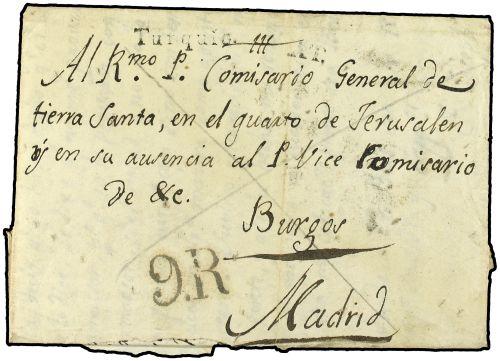 Turquia.
Al R.mo P. Comisario General de
tierra Santa, en el quarto de Jerusalen
y en su ausencia al P. Vice Comisario
de &c.
Burgos
9.R
Madrid